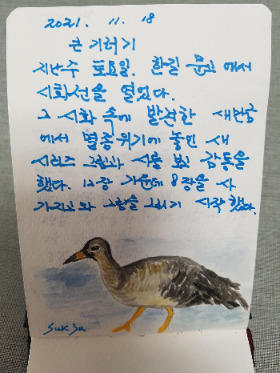 2021. 11. 18
큰 기러기
지난주 토요일. 한길 문고 에서
시화전을 열었다.
그 시화 속에 발견한
에서 멸종위기에 놓인 새
시리즈 그림과 시를 보고 감동을
했다. 12장 가운데 8장을 사
가지고 와 그림을 그리기 시작했다.
Suk Ja